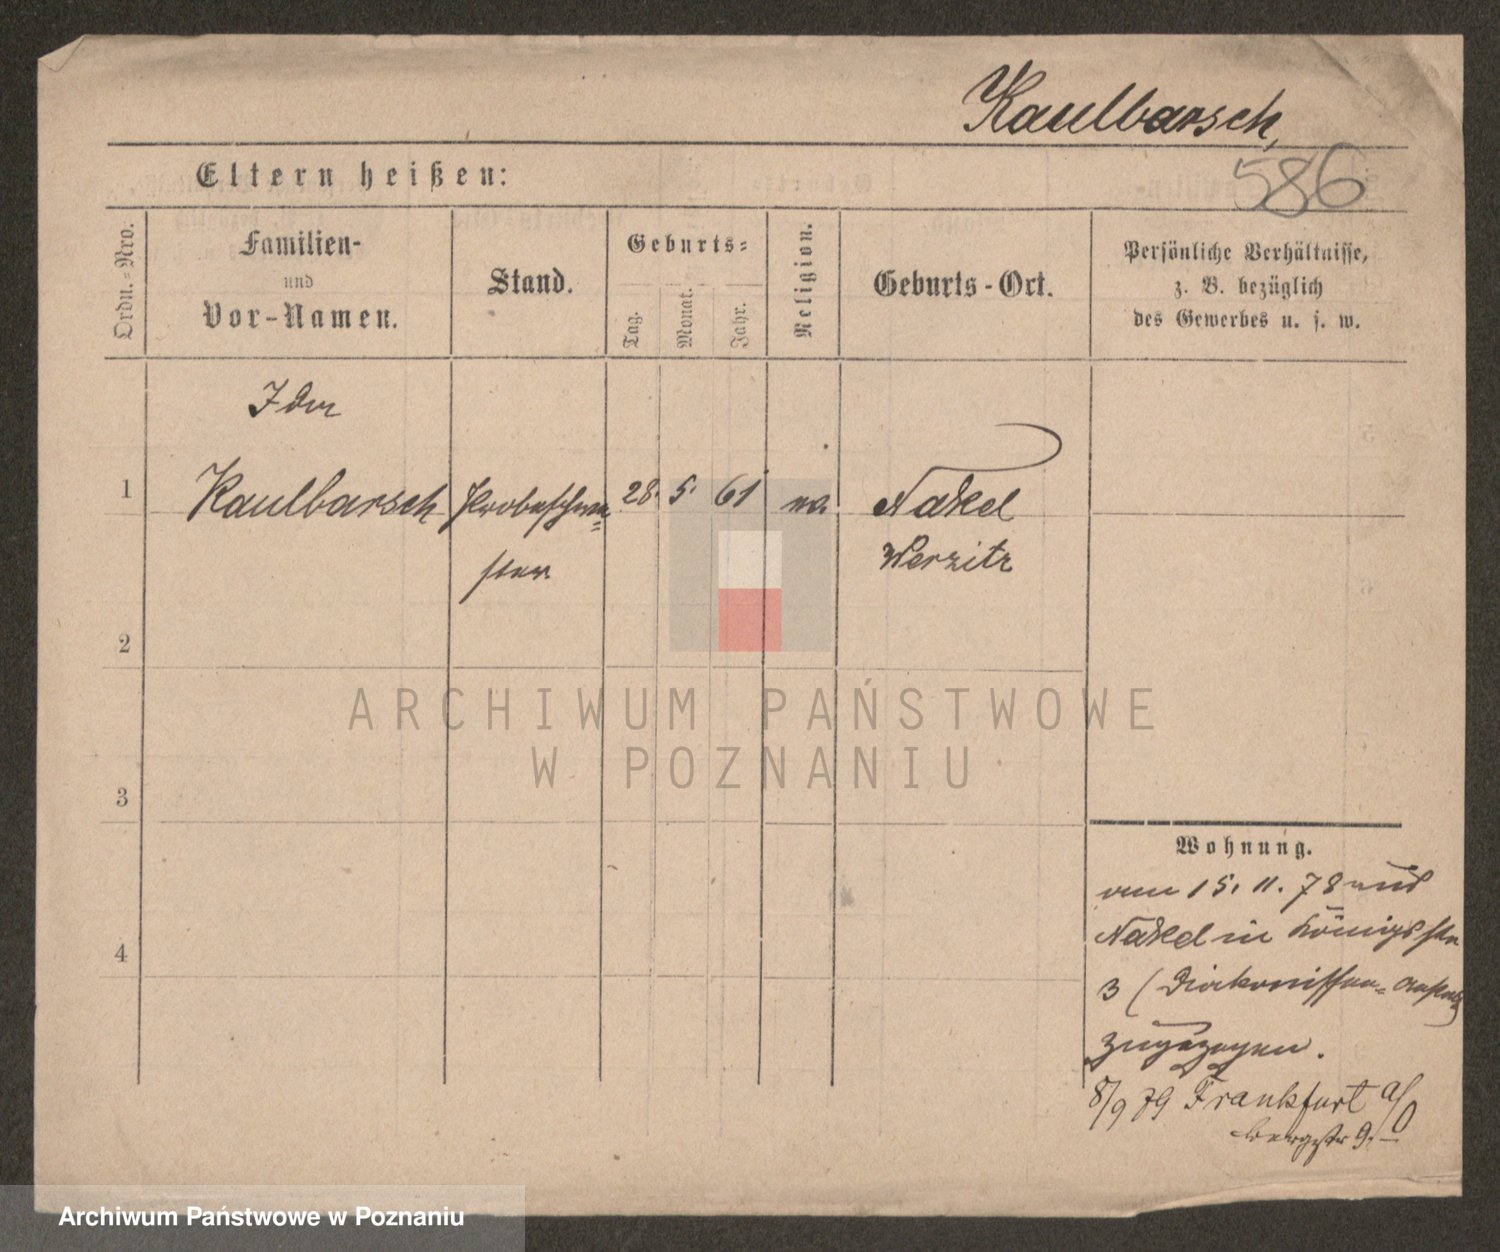 Kaulbarsch,
586
Eltern heißen:
Ordn.-Nro.
Familien-
und
Vor-Namen.
Stand.
Geburts-
Tag.
Monat.
Jahr.
Religion.
Geburts-Ort.
Persönliche Verhältnisse,
z. B. bezüglich
des Gewerbes u. s. w.
Ida
1 Kaulbarsch Probeschwe= 28. 5. 61 ev. Nakel
ster Wersitz
2
3
4
ARCHIWUM PAŃSTWOWE
W POZNANIU
Wohnung.
am 15. 11. 78 aus
Nakel in Königsstr
3 (Diakonissen-Anstalt)
zugezogen.
8/9 79 Frankfurt a/O
9.
Archiwum Państwowe w Poznaniu